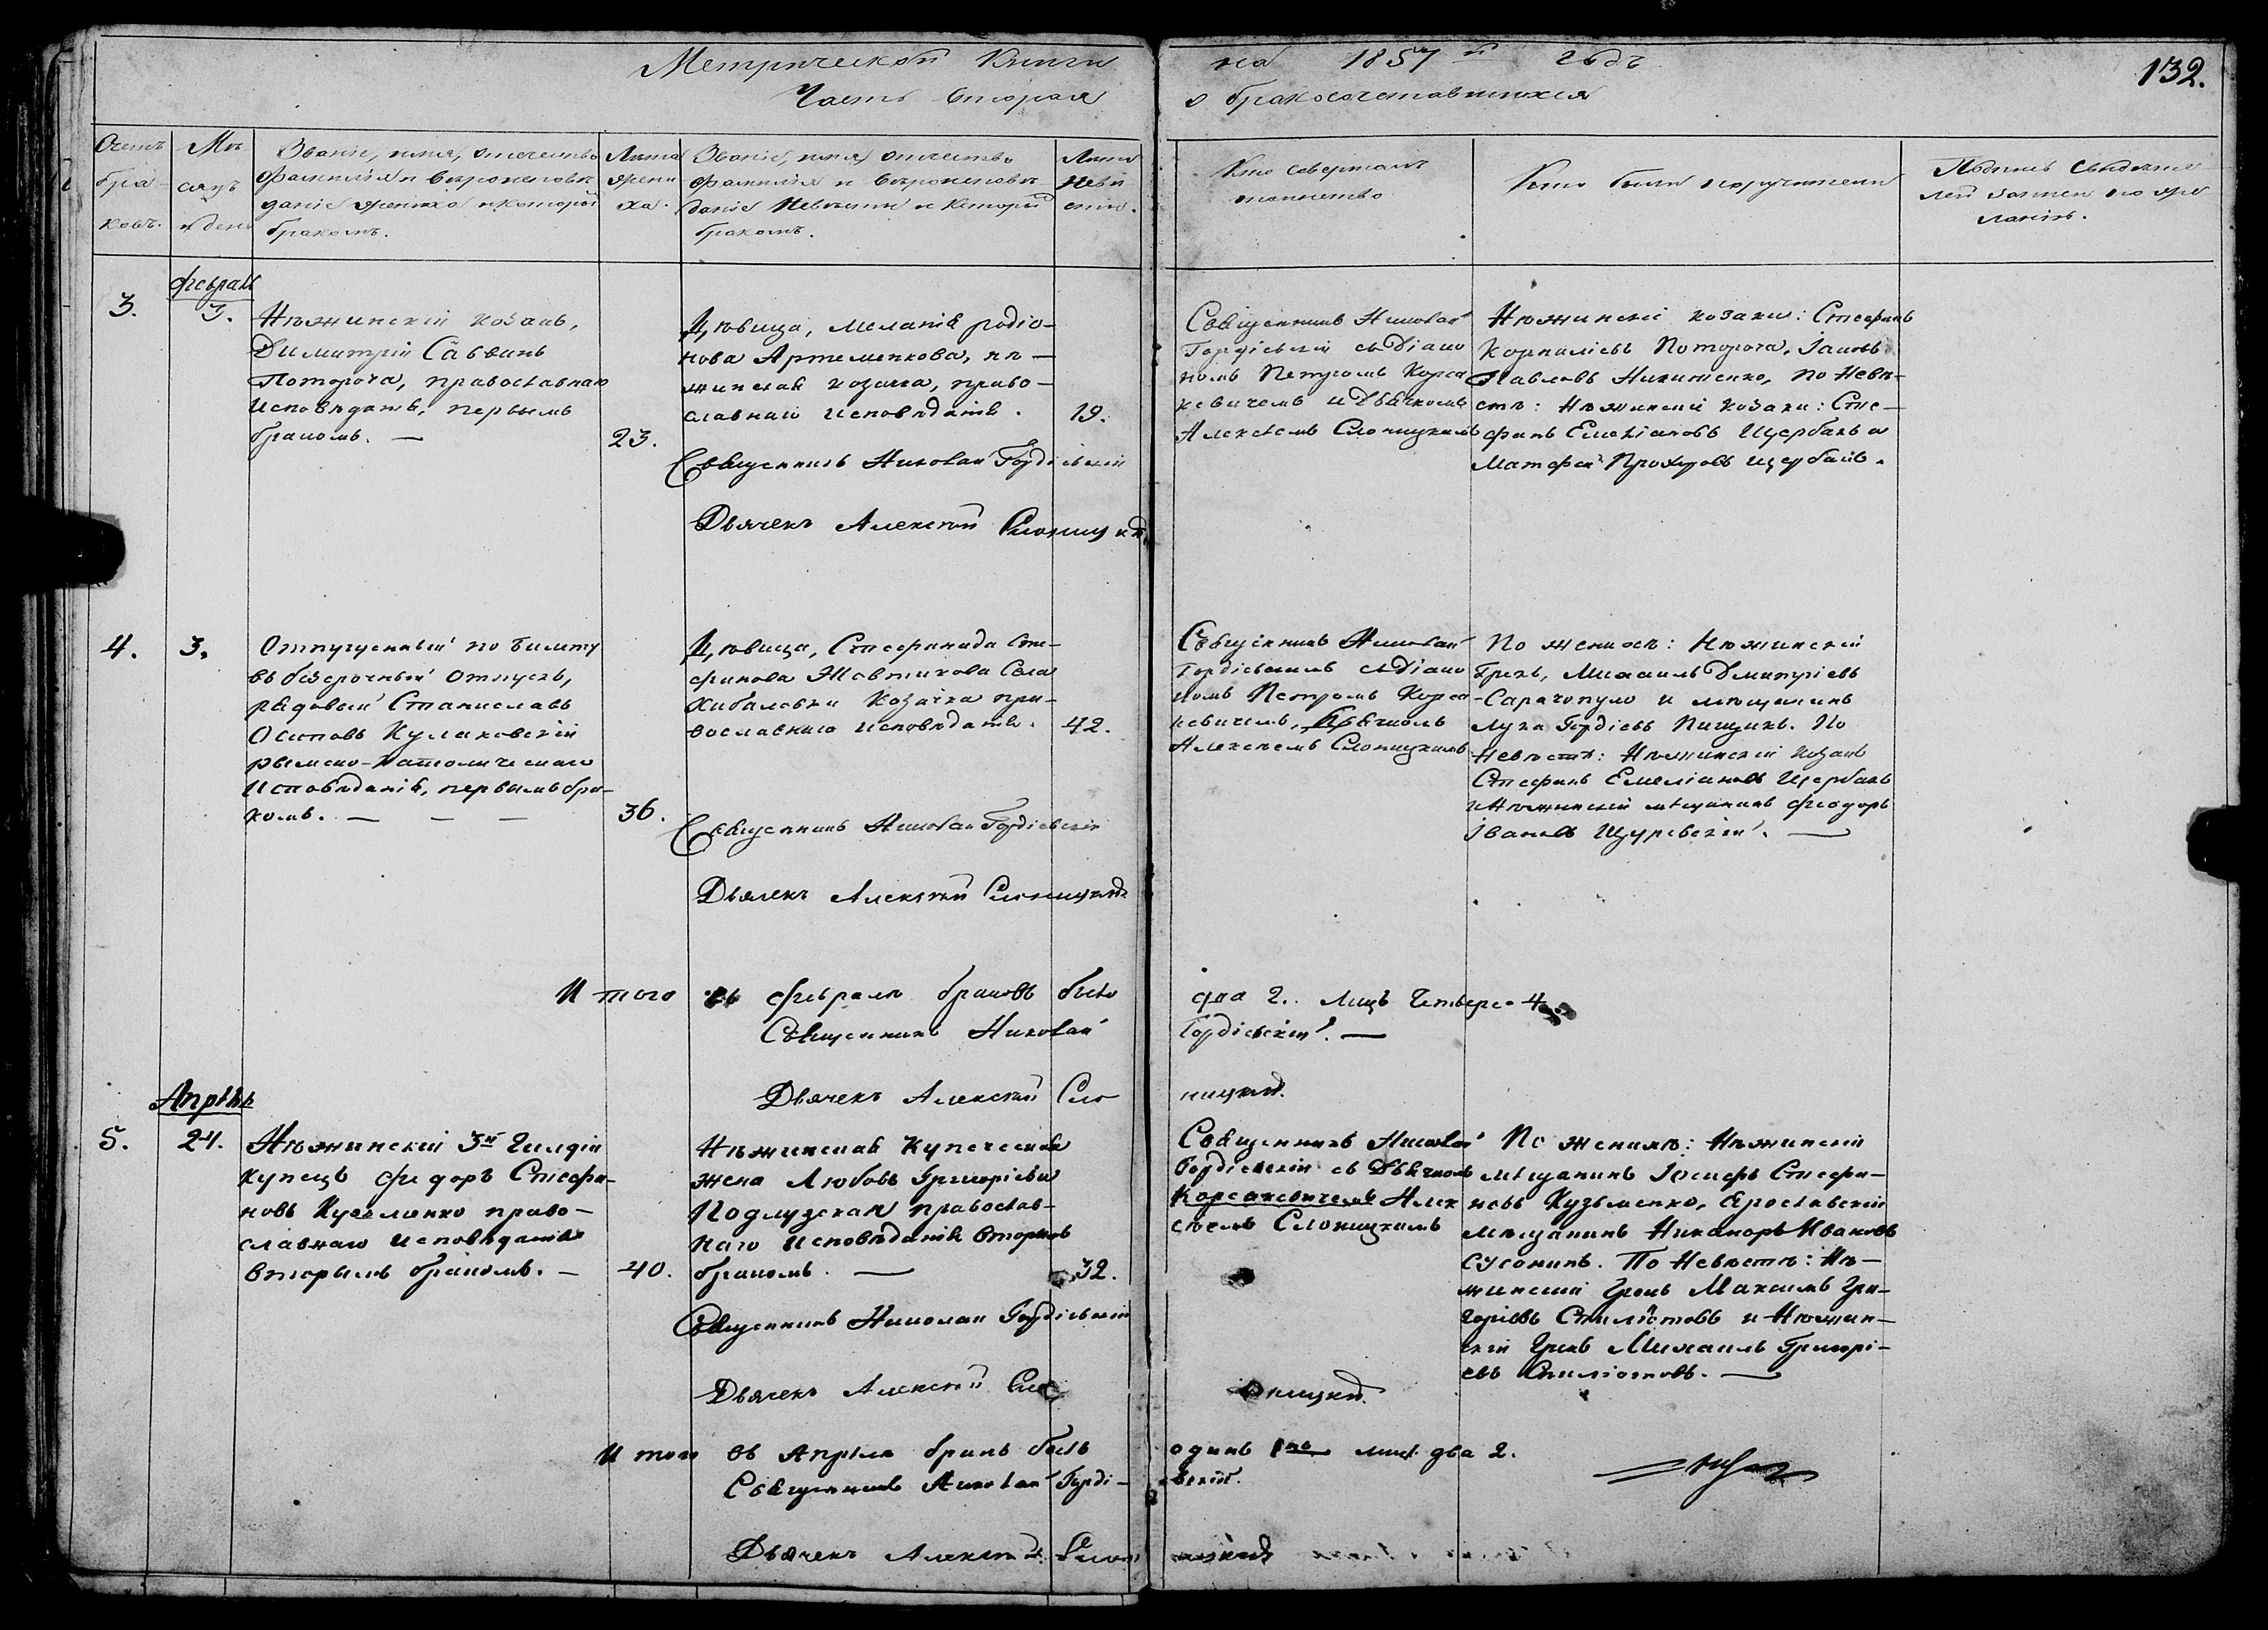 Метрической Книги на 1857 й годъ
132.
Часть вторая о бракосочетавшихся
Счетъ бра-
ковъ.
Мѣ
сяцъ
и день
Званіе, имя, отчество
фамилія и вѣроисповѣ
даніе жениха и которымъ
бракомъ.
Лѣта
жени
ха.
Званіе, имя, отчество
фамилія и вѣроисповѣ
даніе Невѣсты и которымъ
бракомъ.
Лѣта
Невѣ
сты.
Кто совершалъ
таинство
Кто были поручители
Подпись свидѣте
лей записи по же
ланію.
Февраль
3.
3.
Нѣжинскій козакъ,
Димитрій Саввинъ
Потороча, православнаго
Исповѣданія, первымъ
бракомъ. —
23.
Дѣвица, Меланія Родіо-
нова Артеменкова, нѣ-
жинская козачка, право-
славнаго исповѣданія.
19.
Священникъ Николай Гордіевскій
Дьячекъ Алексѣй Слоницкій
Священникъ Николай
Гордіевскій съ Діако
номъ Петромъ Корса
кевичемъ и Дьячкомъ
Алексѣемъ Слоницкимъ
Нѣжинскіе козаки: Стефанъ
Корниліевъ Потороча, Іаковъ
Павловъ Никитенко, по Невѣ-
стѣ: Нѣжинскіе козаки: Сте-
фанъ Емеліановъ Щербакъ и
Матфей Прохоровъ Щербакъ.
4.
3.
Отпущенный по билету
въ безсрочный отпускъ,
рядовый Станиславъ
Осиповъ Кулаковскій
римско-католическаго
Исповѣданія, первымъ бра-
комъ. — — —
36.
Дѣвица, Стефанида Сте-
фанова Жовтикова Села
Хибаловки Козачка пра-
вославнаго исповѣданія.
42.
Священникъ Николай Гордіевскій
Дьячекъ Алексѣй Слоницкій
Священникъ Николай
Гордіевскій съ Діако
номъ Петромъ Корса
кевичемъ, Дьячкомъ
Алексѣемъ Слоницкимъ
По женихѣ: Нѣжинскій
Грекъ, Михаилъ Дмитріевъ
Сарачопуло и мѣщанинъ
Лука Гордіевъ Пищикъ. По
Невѣстѣ: Нѣжинскій Козакъ
Стефанъ Емеліановъ Щербакъ
и Нѣжинскій мѣщанинъ Феодоръ
Івановъ Щуревскій. —
Итого въ февралѣ браковъ было два 2. Лицъ Четверо 4
Священникъ Николай Гордіевскій. —
Дьячекъ Алексѣй Слоницкій.
Апрѣль
5.
24.
Нѣжинскій 3й Гилдіи
Купецъ Федоръ Стефа-
новъ Кузьменко право-
славнаго исповѣданія
вторымъ бракомъ. —
40.
Нѣжинская Купеческая
жена Любовь Григоріева
Подлузская православ-
наго Исповѣданія вторымъ
бракомъ —
32.
Священникъ Николай Гордіевскій
Дьячекъ Алексѣй Слоницкій.
Священникъ Николай
Гордіевскій съ Дьячкомъ
Корсакевичемъ Алек
сѣемъ Слоницкимъ
По женихѣ: Нѣжинскій
мѣщанинъ Іосифъ Стефа-
новъ Кузьменко, Ярославскій
мѣщанинъ Никаноръ Ивановъ
Сусонинъ. По Невѣстѣ: Нѣ-
жинскій Грекъ Максимъ Гри-
горіевъ Спиліотовъ и Нѣжин-
скій Грекъ Михаилъ Григорі-
евъ Спиліотовъ. —
Итого въ Апрѣлѣ бракъ былъ одинъ 1нъ лицъ два 2.
Священникъ Николай Гордіевскій.
Дьячекъ Алексѣй Слоницкій